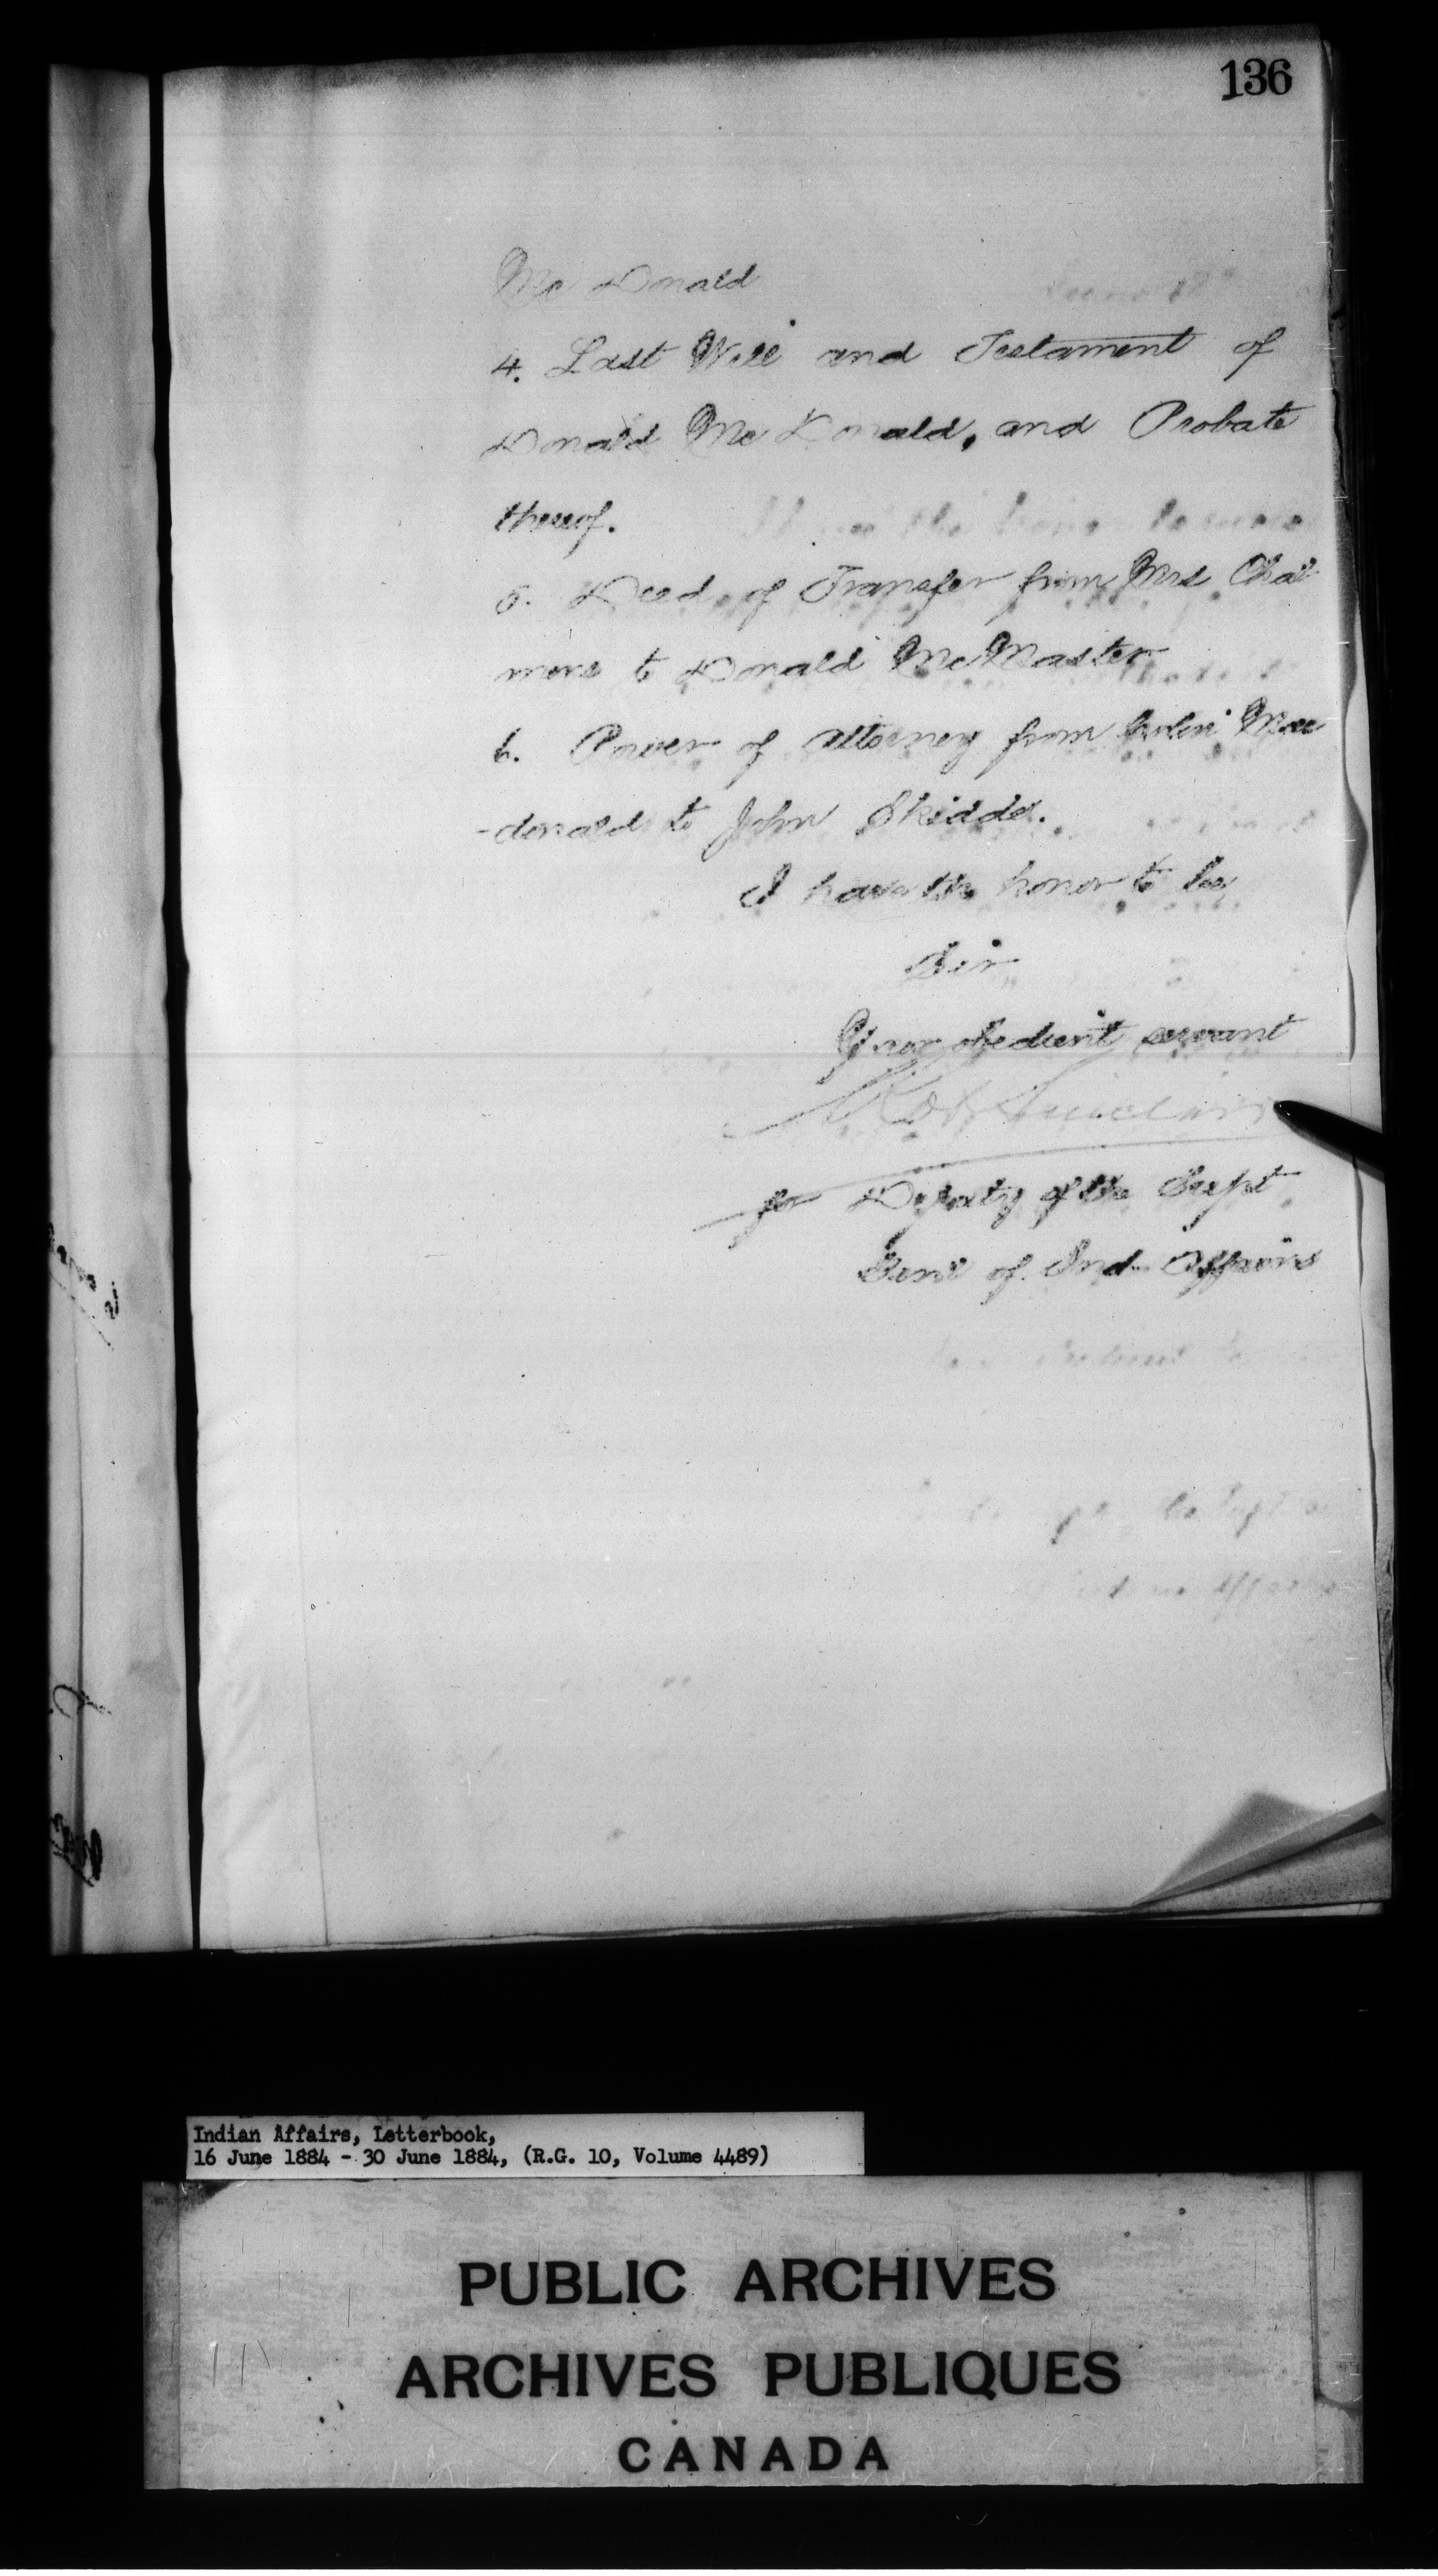 136
Mc Donald
4. Last Will and Testament of
Donald Mc Donald, and Probate
thereof.
5. Deed of Transfer from Mrs Chal
mers to Donald McMaster
6. Power of attorney from Mac
-donald to John Skidder.
I have the honor to be
Sir
Your obedient servant
Sinclair
for Deputy of the Supt
Genl of Ind Affairs
Indian Affairs, Letterbook,
16 June 1884 - 30 June 1884, (R.G. 10, Volume 4489)
PUBLIC ARCHIVES
ARCHIVES PUBLIQUES
CANADA